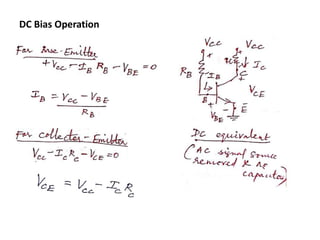 DC Bias Operation
For Base-Emitter
+Vcc - I_B R_B - V_BE = 0
I_B = Vcc - V_BE
R_B
For collector-Emitter
Vcc - I_C R_C - V_CE = 0
V_CE = Vcc - I_C R_C
Vcc Vcc
R_B I_B I_C
C
V_CE
B
V_BE E
DC equivalent
(AC signal source
removed &
capacitor)